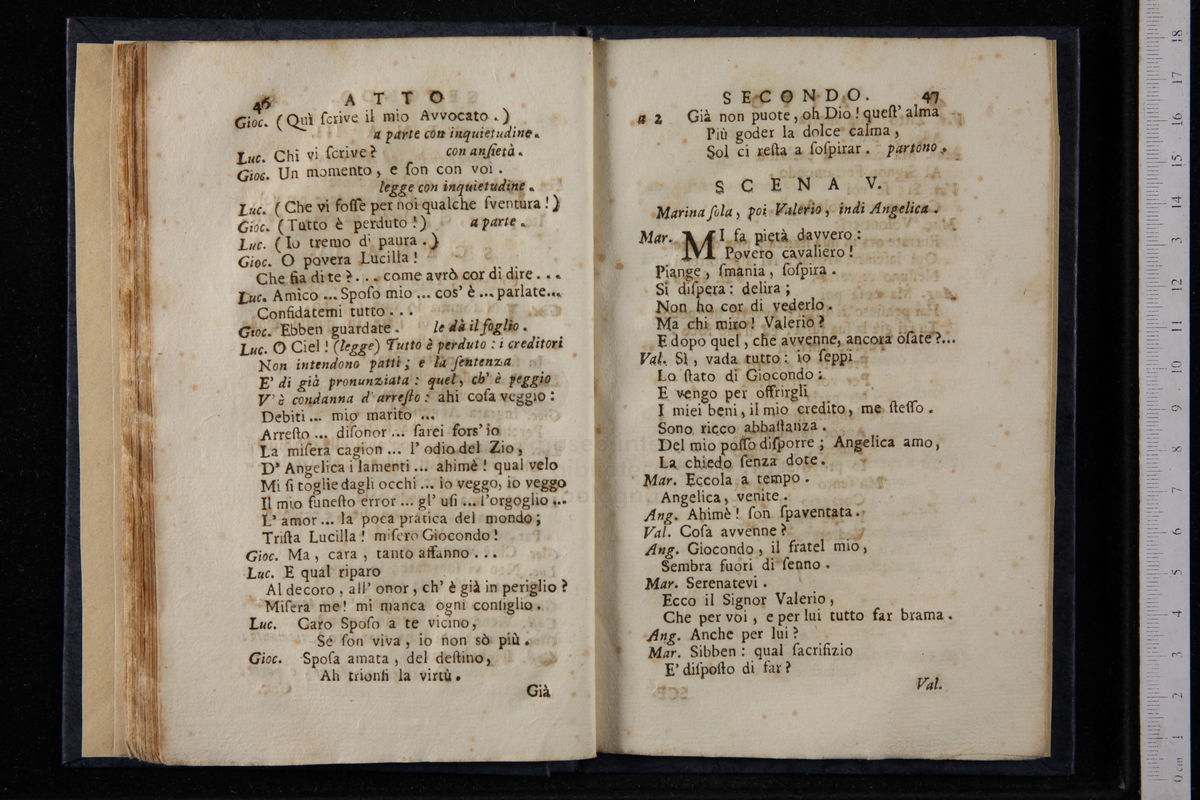 46 ATTO
Gioc. (Quì ſcrive il mio Avvocato.)
a parte con inquietudine.
Luc. Chi vi ſcrive? con anſietà.
Gioc. Un momento, e ſon con voi.
legge con inquietudine.
Luc. (Che vi foſſe per noi qualche ſventura!)
Gioc. (Tutto è perduto!) a parte.
Luc. (Io tremo di paura.)
Gioc. O povera Lucilla!
Che fia di te?... come avrò cor di dire...
Luc. Amico ... Spoſo mio ... cos' è ... parlate...
Confidatemi tutto...
Gioc. Ebben guardate. le dà il foglio.
Luc. O Ciel! (legge) Tutto è perduto: i creditori
Non intendono patti; e la ſentenza
E' di già pronunziata: quel, ch' è peggio
V' è condanna d' arreſto: ahi coſa veggio:
Debiti ... mio marito ...
Arreſto ... diſonor ... ſarei fors' io
La miſera cagion ... l' odio del Zio,
D' Angelica i lamenti ... ahimè! qual velo
Mi ſi toglie dagli occhi ... io veggo, io veggo
Il mio funeſto error ... gl' uſi ... l'orgoglio ...
L' amor ... la poca pratica del mondo;
Triſta Lucilla! miſero Giocondo!
Gioc. Ma, cara, tanto affanno...
Luc. E qual riparo
Al decoro, all' onor, ch' è già in periglio?
Miſera me! mi manca ogni conſiglio.
Luc. Caro Spoſo a te vicino,
Se ſon viva, io non sò più.
Gioc. Spoſa amata, del deſtino,
Ah trionfi la virtù.
Già
SECONDO. 47
a 2 Già non puote, oh Dio! queſt' alma
Più goder la dolce calma,
Sol ci reſta a ſoſpirar. partono.
SCENA V.
Marina ſola, poi Valerio, indi Angelica.
Mar. MI fa pietà davvero:
Povero cavaliero!
Piange, ſmania, ſoſpira.
Si diſpera: delira;
Non ho cor di vederlo.
Ma chi miro! Valerio?
E dopo quel, che avvenne, ancora oſate?...
Val. Sì, vada tutto: io ſeppi
Lo ſtato di Giocondo:
E vengo per offrirgli
I miei beni, il mio credito, me ſteſſo.
Sono ricco abbaſtanza.
Del mio poſſo diſporre; Angelica amo,
La chiedo ſenza dote.
Mar. Eccola a tempo.
Angelica, venite.
Ang. Ahimè! ſon ſpaventata.
Val. Coſa avvenne?
Ang. Giocondo, il fratel mio,
Sembra fuori di ſenno.
Mar. Serenatevi.
Ecco il Signor Valerio,
Che per voi, e per lui tutto far brama.
Ang. Anche per lui?
Mar. Sibben: qual ſacrifizio
E' diſpoſto di far?
Val.
0 cm 1 2 3 4 5 6 7 8 9 10 11 12 13 14 15 16 17 18